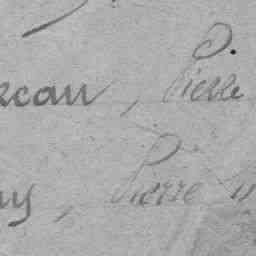 reau, Pierre
ny, Pierre